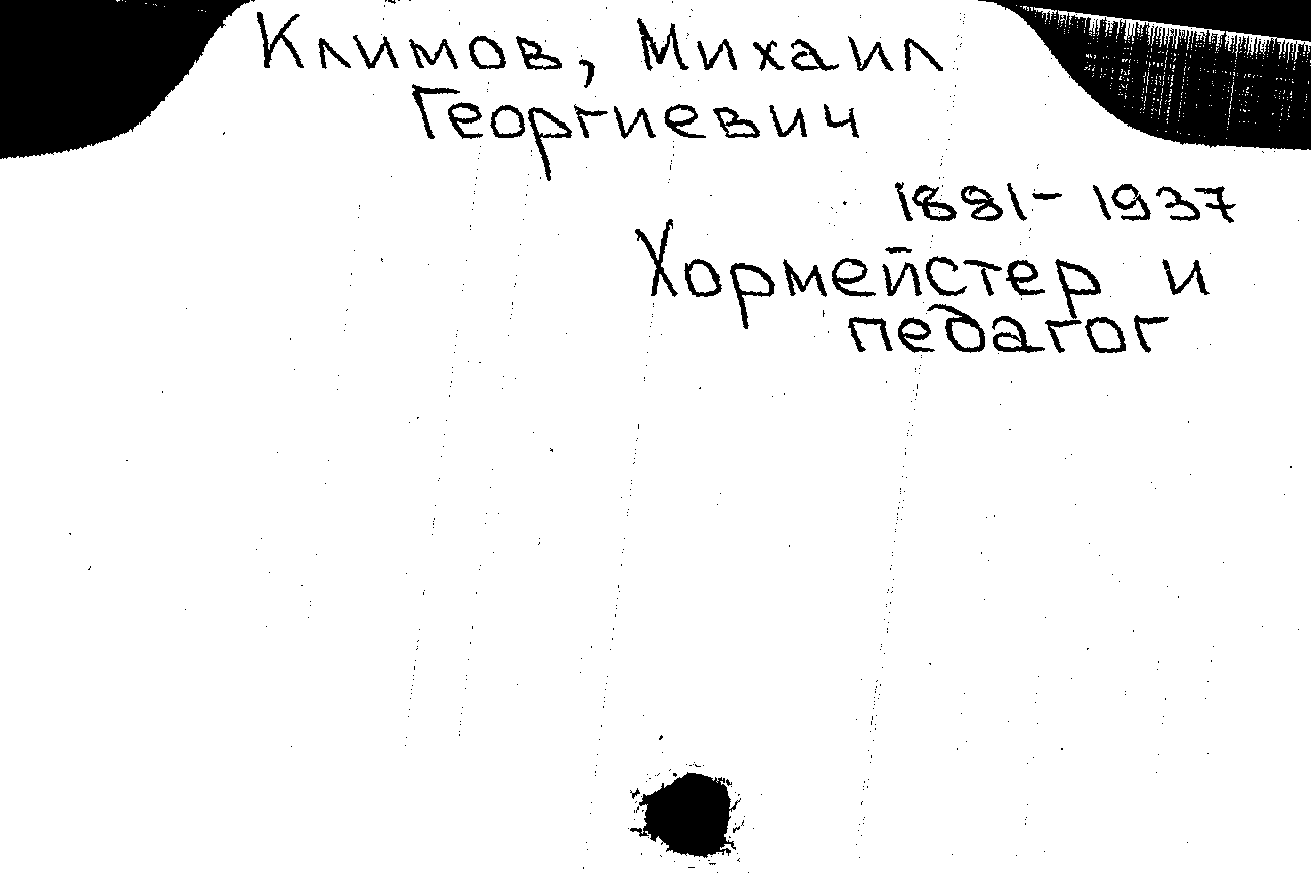 Климов, Михаил
Георгиевич
1881-1937
Хормейстер и
педагог